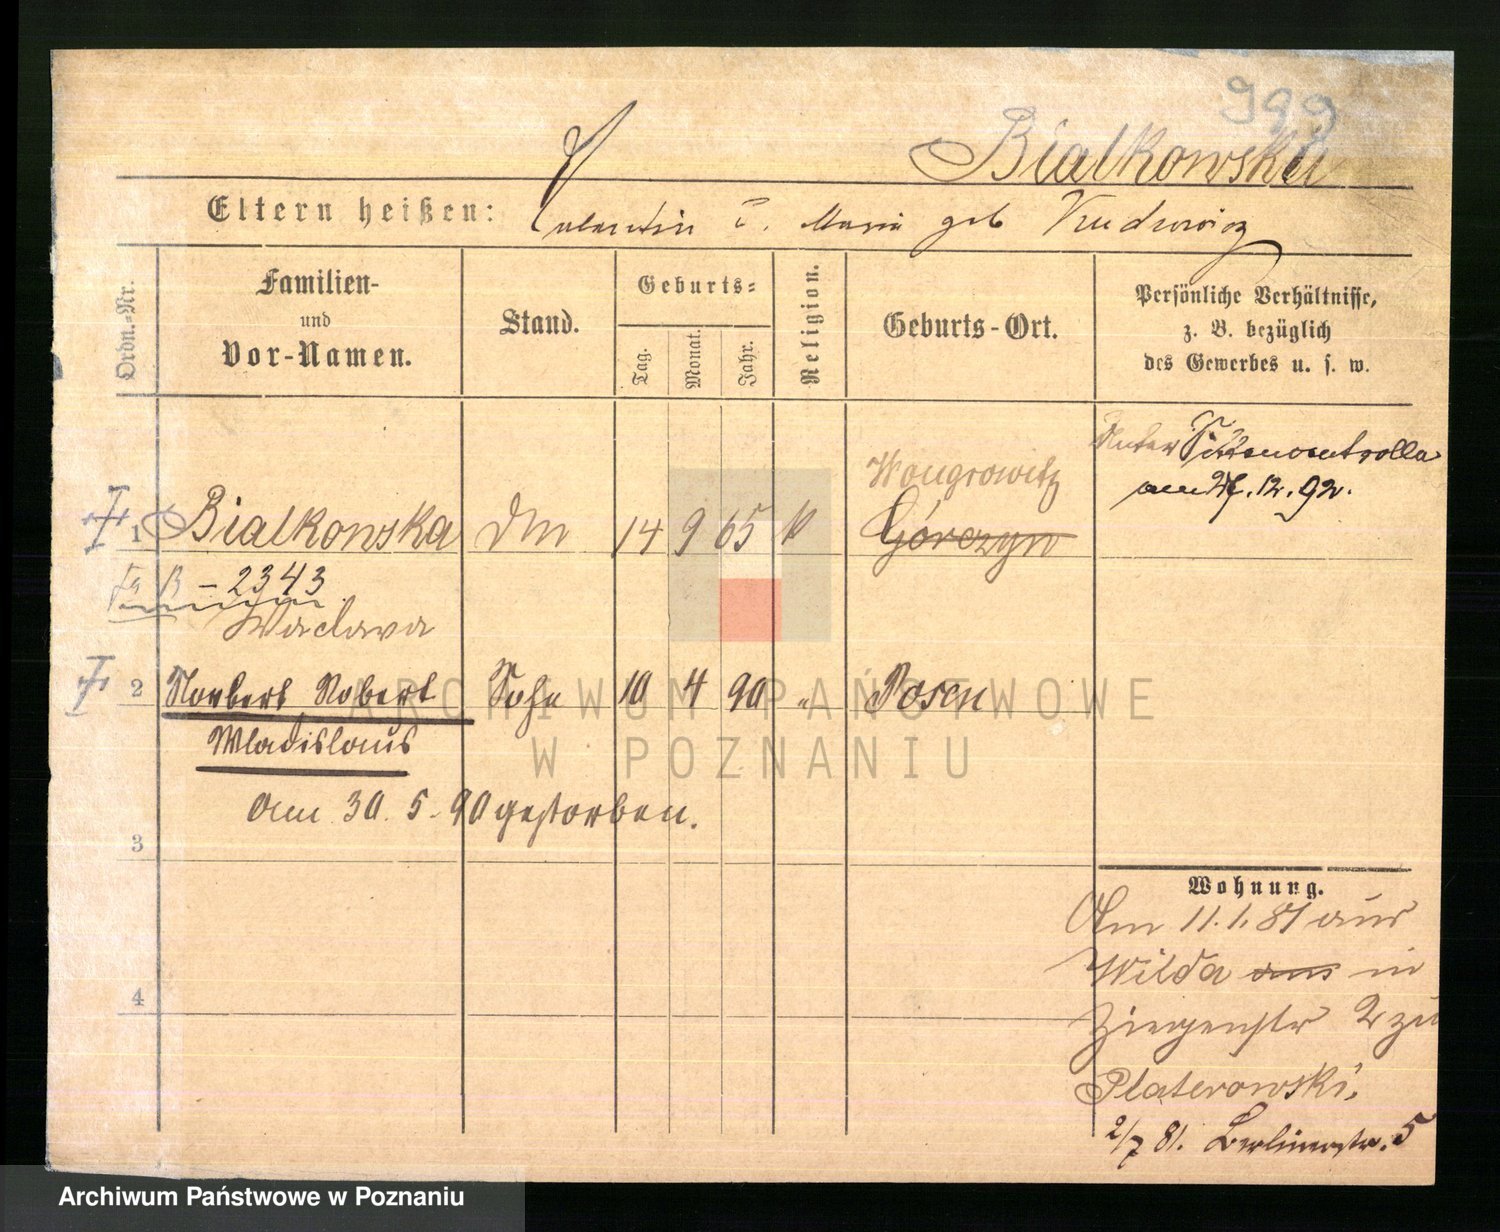 999
Bialkowska
Eltern heißen: Valentin u. Maria geb
Familien-
und
Vor-Namen.
Ordn.-Nr.
Stand.
Geburts-
Tag.
Monat.
Jahr.
Religion.
Geburts-Ort.
Persönliche Verhältnisse,
z. B. bezüglich
des Gewerbes u. s. w.
Unter Sittencontrolle
am 12. 92.
Wongrowitz
1 Bialkowska 14 9 65 k Górczyn
B - 2343
Waclava
2 Norbert Robert Sohn 10 4 90 " Posen
Wladislaus
Am 30. 5. 90 gestorben.
3
4
Wohnung.
Am 11.1.81 aus
Wilda aus in
Ziegenstr 2 zu
Platerowski.
2/7 81. Berlinerstr. 5
ARCHIWUM PAŃSTWOWE
W POZNANIU
Archiwum Państwowe w Poznaniu